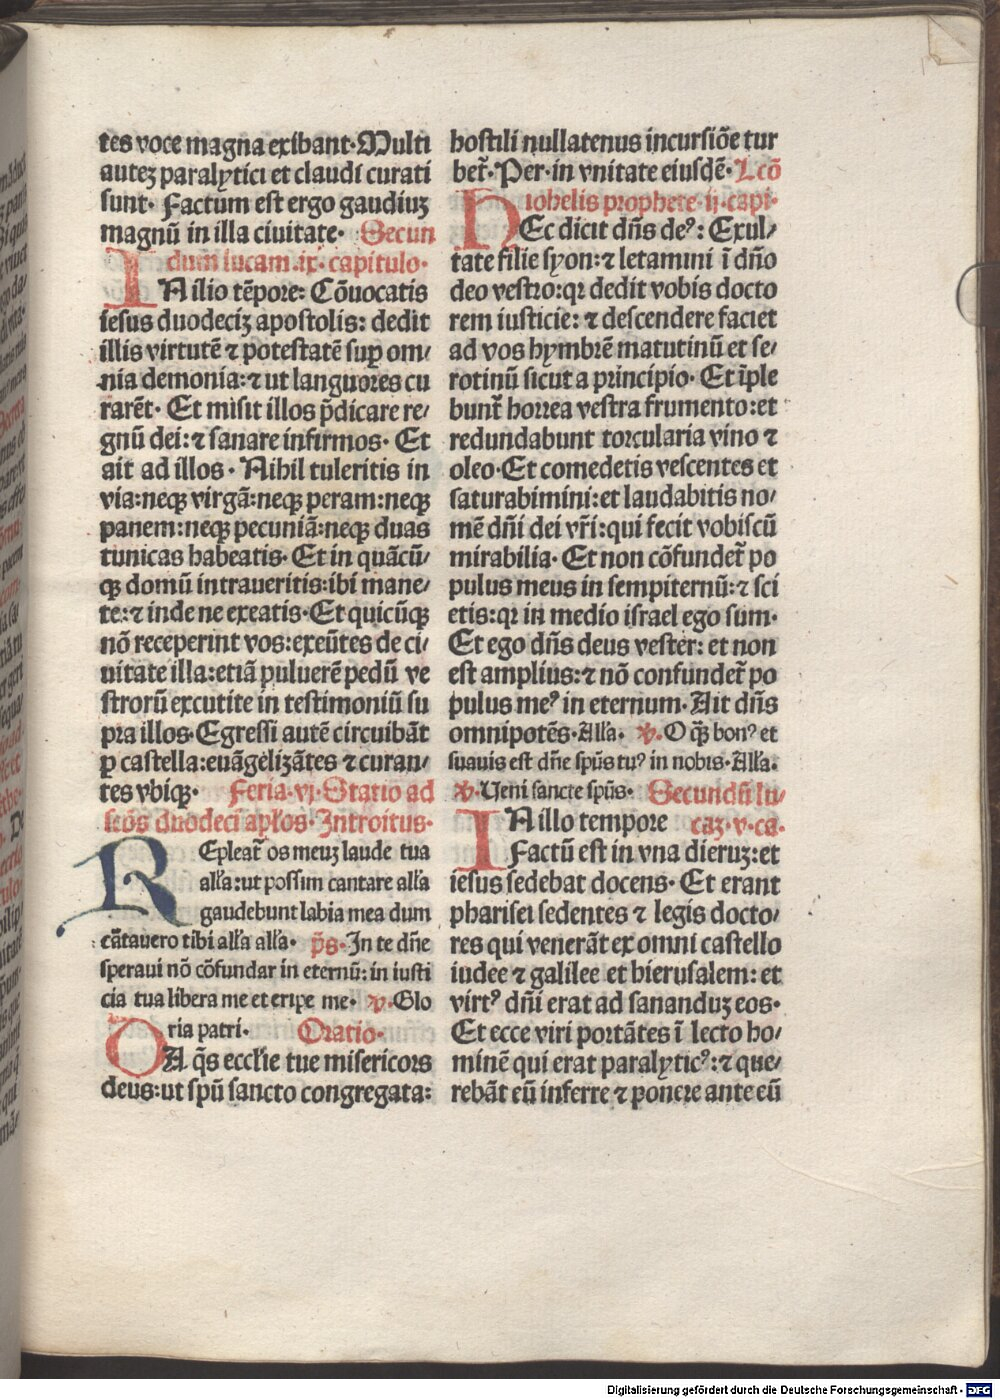 tes voce magna exibant· Multi
autez paralytici et claudi curati
sunt· Factum est ergo gaudiuz
magnū in illa ciuitate· Secun
dum lucam .ix· capitulo·
IN ilio tēpore: Cōuocatis
iesus duodeciz apostolis: dedit
illis virtutē ⁊ potestatē suꝑ om/
nia demonia: ⁊ ut languores cu
rarēt· Et misit illos p̄dicare re/
gnū dei: ⁊ sanare infirmos· Et
ait ad illos· Nihil tuleritis in
via: neqꝫ virgā: neqꝫ peram: neqꝫ
panem: neqꝫ pecuniā: neqꝫ duas
tunicas habeatis· Et in quācū/
qꝫ domū intraueritis: ibi mane/
te: ⁊ inde ne exeatis· Et quicūqꝫ
nō receperint vos: exeūtes de ci/
uitate illa: etiā puluerē pedū ve
strorū excutite in testimoniū su
pra illos· Egressi autē circuibāt
ꝑ castella: euāgelizātes ⁊ curan/
tes vbiqꝫ· Feria·vj· Statio ad
scōs duodeci apl̄os· Introitus·
REpleat᷑ os meuz laude tua
all̄a: ut possim cantare all̄a
gaudebunt labia mea dum
cātauero tibi all̄a all̄a· p̄s· In te dn̄e
speraui nō cōfundar in eternū: in iusti
cia tua libera me et eripe me· ℣· Glo
ria patri· Oratio·
DA q̄s eccl̄ie tue misericors
deus: ut spū sancto congregata:
hostili nullatenus incursiōe tur
bet᷑· Per· in vnitate eiusdē· Lcō
iohelis prophete·ij·capi·
HEc dicit dn̄s deꝰ: Exul/
tate filie syon: ⁊ letamini ī dn̄o
deo vestro: qꝛ dedit vobis docto
rem iusticie: ⁊ descendere faciet
ad vos hymbrē matutinū et se/
rotinū sicut a principio· Et īple
bunt᷑ horrea vestra frumento: et
redundabunt torcularia vino ⁊
oleo· Et comedetis vescentes et
saturabimini: et laudabitis no/
mē dn̄i dei vr̄i: qui fecit vobiscū
mirabilia· Et non cōfundet᷑ po
pulus meus in sempiternū: ⁊ sci
etis: qꝛ in medio israel ego sum·
Et ego dn̄s deus vester: et non
est amplius: ⁊ nō confundet᷑ po
pulus meꝰ in eternum· Ait dn̄s
omnipotēs· All̄a· ℣· O qꝫ bonꝰ et
suauis est dn̄e spūs tuꝰ in nobis· All̄a·
℣· Ueni sancte spūs· Secundū lu/
IN illo tempore caz·v·ca·
Factū est in vna dieruz: et
iesus sedebat docens· Et erant
pharisei sedentes ⁊ legis docto/
res qui venerāt ex omni castello
iudee ⁊ galilee et hierusalem: et
virtꝰ dn̄i erat ad sananduz eos·
Et ecce viri portātes ī lecto ho/
minē qui erat paralyticꝰ: ⁊ que/
rebāt eū inferre ⁊ ponere ante eū
Digitalisierung gefördert durch die Deutsche Forschungsgemeinschaft - DFG